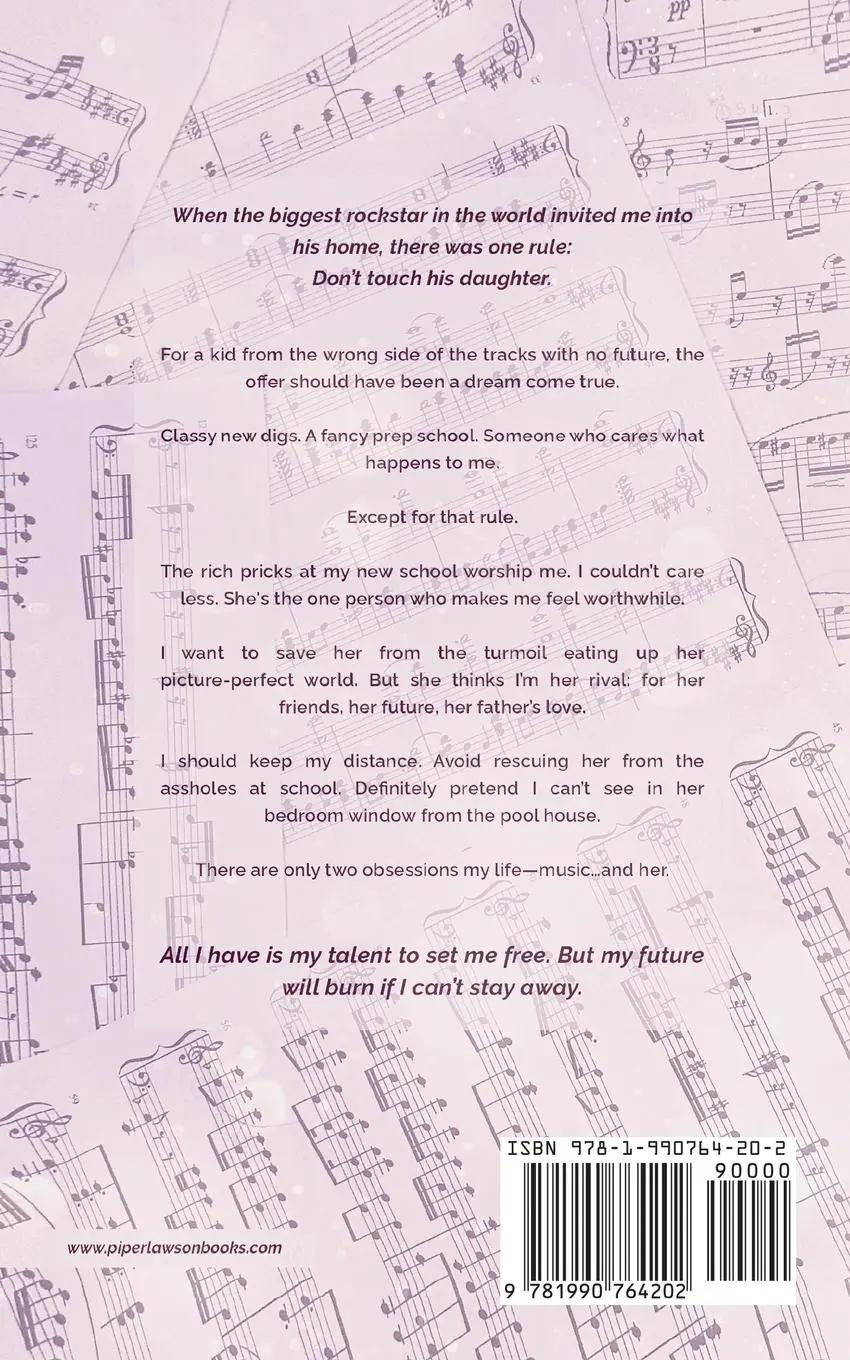 When the biggest rockstar in the world invited me into
his home, there was one rule:
Don't touch his daughter.
For a kid from the wrong side of the tracks with no future, the
offer should have been a dream come true.
Classy new digs. A fancy prep school. Someone who cares what
happens to me.
Except for that rule.
The rich pricks at my new school worship me. I couldn't care
less. She's the one person who makes me feel worthwhile.
I want to save her from the turmoil eating up her
picture-perfect world. But she thinks I'm her rival: for her
friends, her future, her father's love.
I should keep my distance. Avoid rescuing her from the
assholes at school. Definitely pretend I can't see in her
bedroom window from the pool house.
There are only two obsessions my life—music…and her.
All I have is my talent to set me free. But my future
will burn if I can't stay away.
ISBN 978-1-990764-20-2
90000
9 781990 764202
www.piperlawsonbooks.com